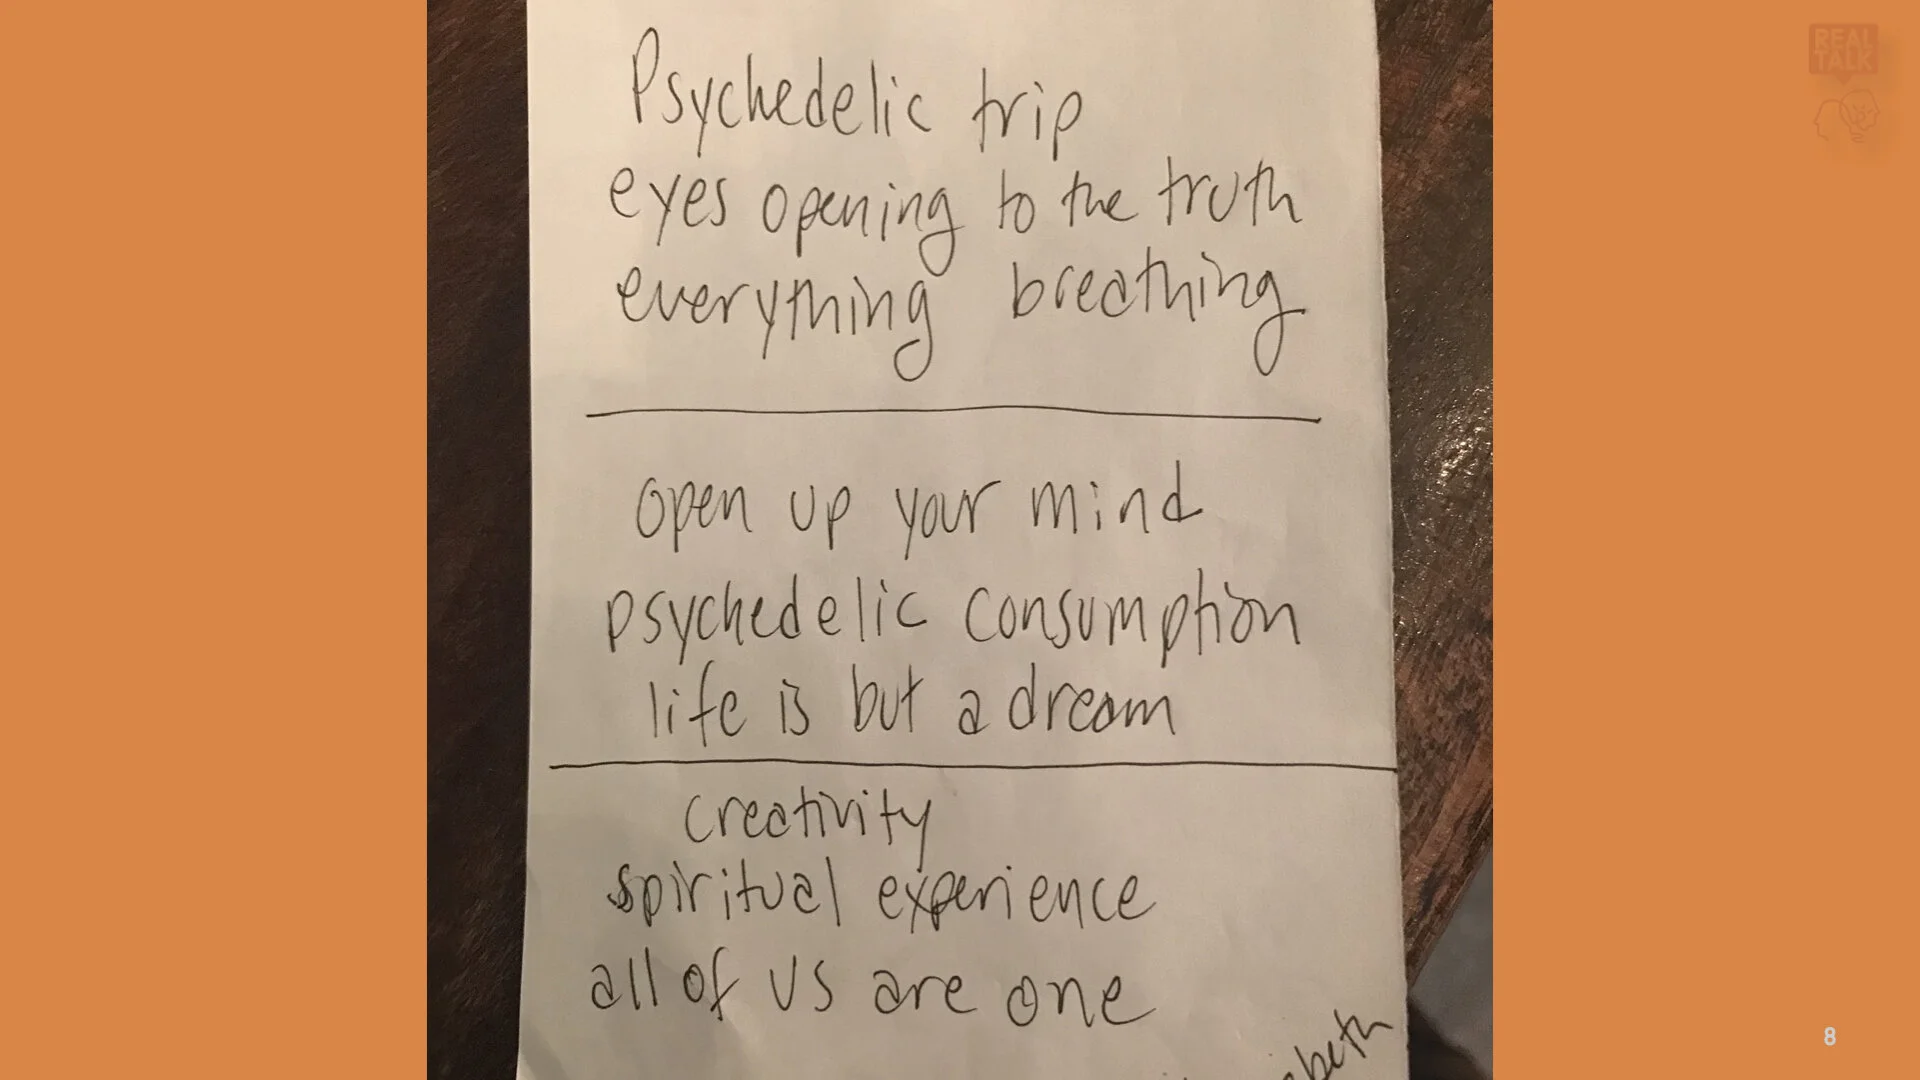 REAL
TALK
Psychedelic trip
eyes opening to the truth
everything breathing
open up your mind
psychedelic consumption
life is but a dream
Creativity
spiritual experience
all of us are one
8